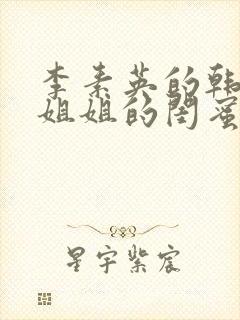 李素英的韩
姐姐的闺蜜
星宇紫宸